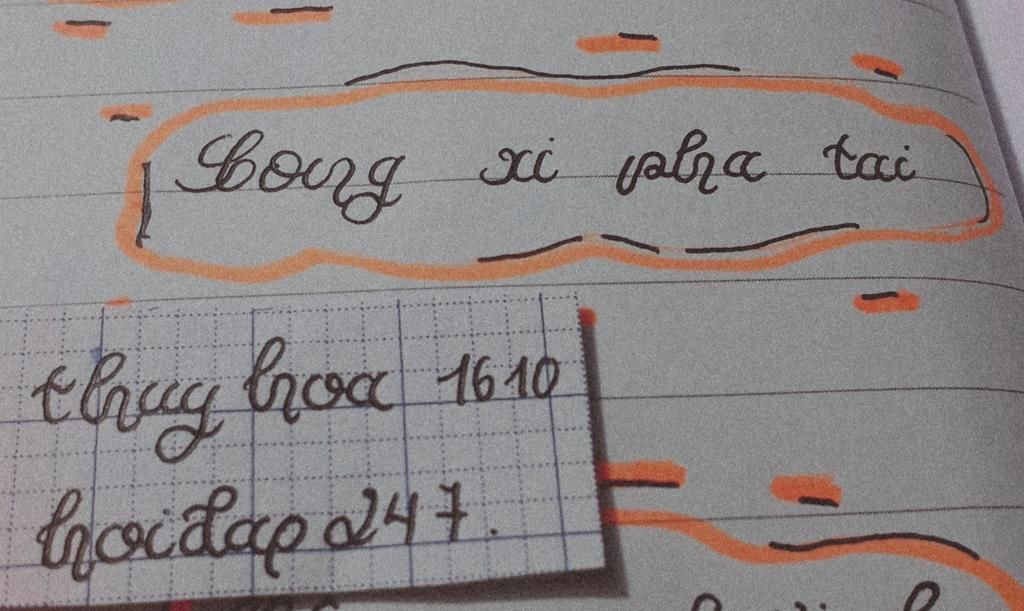 Song xi pha tai
thuy hoa 1610
hoidap 247.